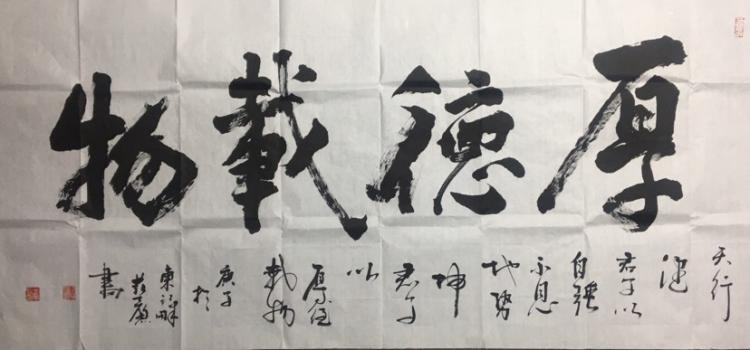 厚德載物
天行
健
君子以
自强
不息
地势
坤
君子
以
厚德
載物
庚子
於
東
書